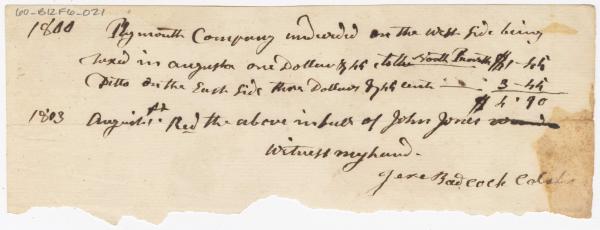 60-B12F6-021
1800 Plymouth Company undevided on the West Side being
taxed in augusta one Dollar & 46 to the North Parish $1-46
Ditto on the East Side three Dollars & 44 cents 3-44
$4.90
1803 August 1st Red the above in full of John Jones
Witness my hand.
Jere Badcock